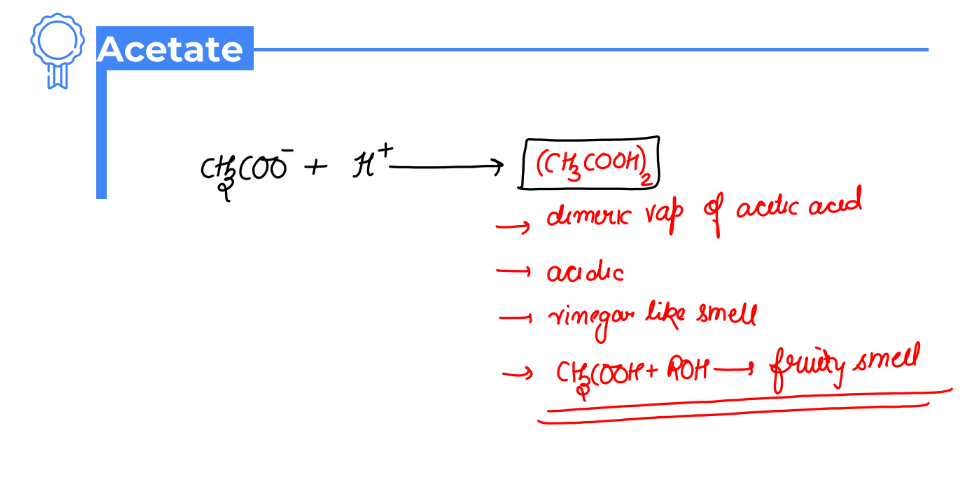 Acetate
CH₃COO⁻ + H⁺ ⟶ (CH₃COOH)₂
→ dimeric vap of acetic acid
→ acidic
→ vinegar like smell
→ CH₃COOH + ROH ⟶ fruity smell